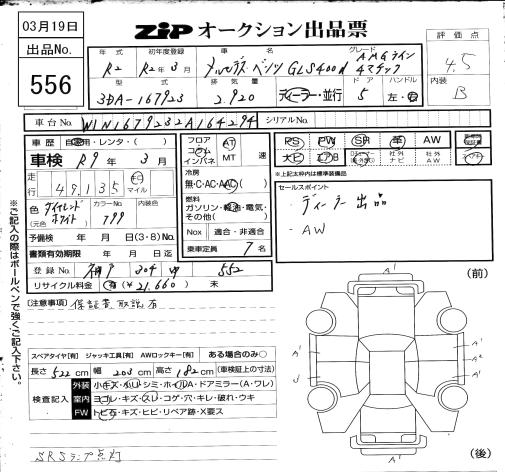 03月19日
ZiP オークション出品票
出品No.
556
年式 初年度登録 車名 グレード
R2 R2年3月 メルセデス・ベンツ GLS400d AMGライン 4マチック
型式 排気量 ドア ハンドル
3DA-167923 2.920 ディーラー・並行 5 左・右
評価点
4.5
内装
B
車台No. W1N1679232A164294 シリアルNo.
車歴 自家用・レンタ・( )
車検 R9年3月
走行 49,135 キロ マイル
色(元色) ダイヤモンドホワイト カラーNo. 799 内装色
予備検 年 月 日(3・8)No.
書類有効期限 年 月 日迄
登録No. 神戸 304 552
リサイクル料金 有(¥21,660) 未
フロア コラム インパネ AT MT 速
冷房
無・C・AC・AAC( )
燃料
ガソリン・軽油・電気・その他( )
Nox 適合・非適合
乗車定員 7名
PS PW SR 革 AW
ナビ エアB 社外ナビ 社外AW
※上記太枠内は標準装備品
セールスポイント
・ディーラー出品
・AW
※ご記入の際はボールペンで強くご記入下さい。
[注意事項] 保証書 取説 有
スペアタイヤ[有] ジャッキ工具[有] AWロックキー[有] ある場合のみ○
長さ 522cm 幅 203cm 高さ 182cm (車検証上の寸法)
検査記入
外装 小キズ・小凹・シミ・ホイルA・ドアミラー(A・ワレ)
室内 ヨゴレ・キズ・スレ・コゲ・穴・キレ・破れ・ウキ
FW トビ石・キズ・ヒビ・リペア跡・X要ス
SRSランプ点灯
(前)
A¹
A¹
A¹
A²
A¹
U
A¹
(後)